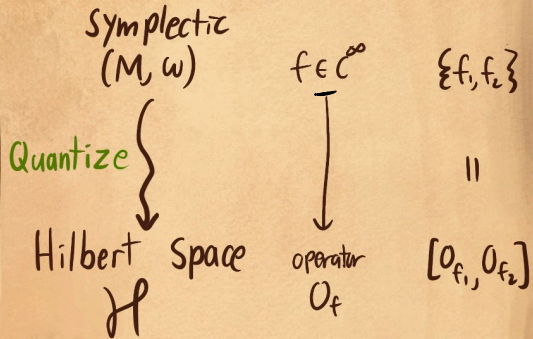 Symplectic
(M, ω)
f ∈ C^∞
{f₁, f₂}
Quantize
=
Hilbert Space
H
operator
O_f
[O_f₁, O_f₂]